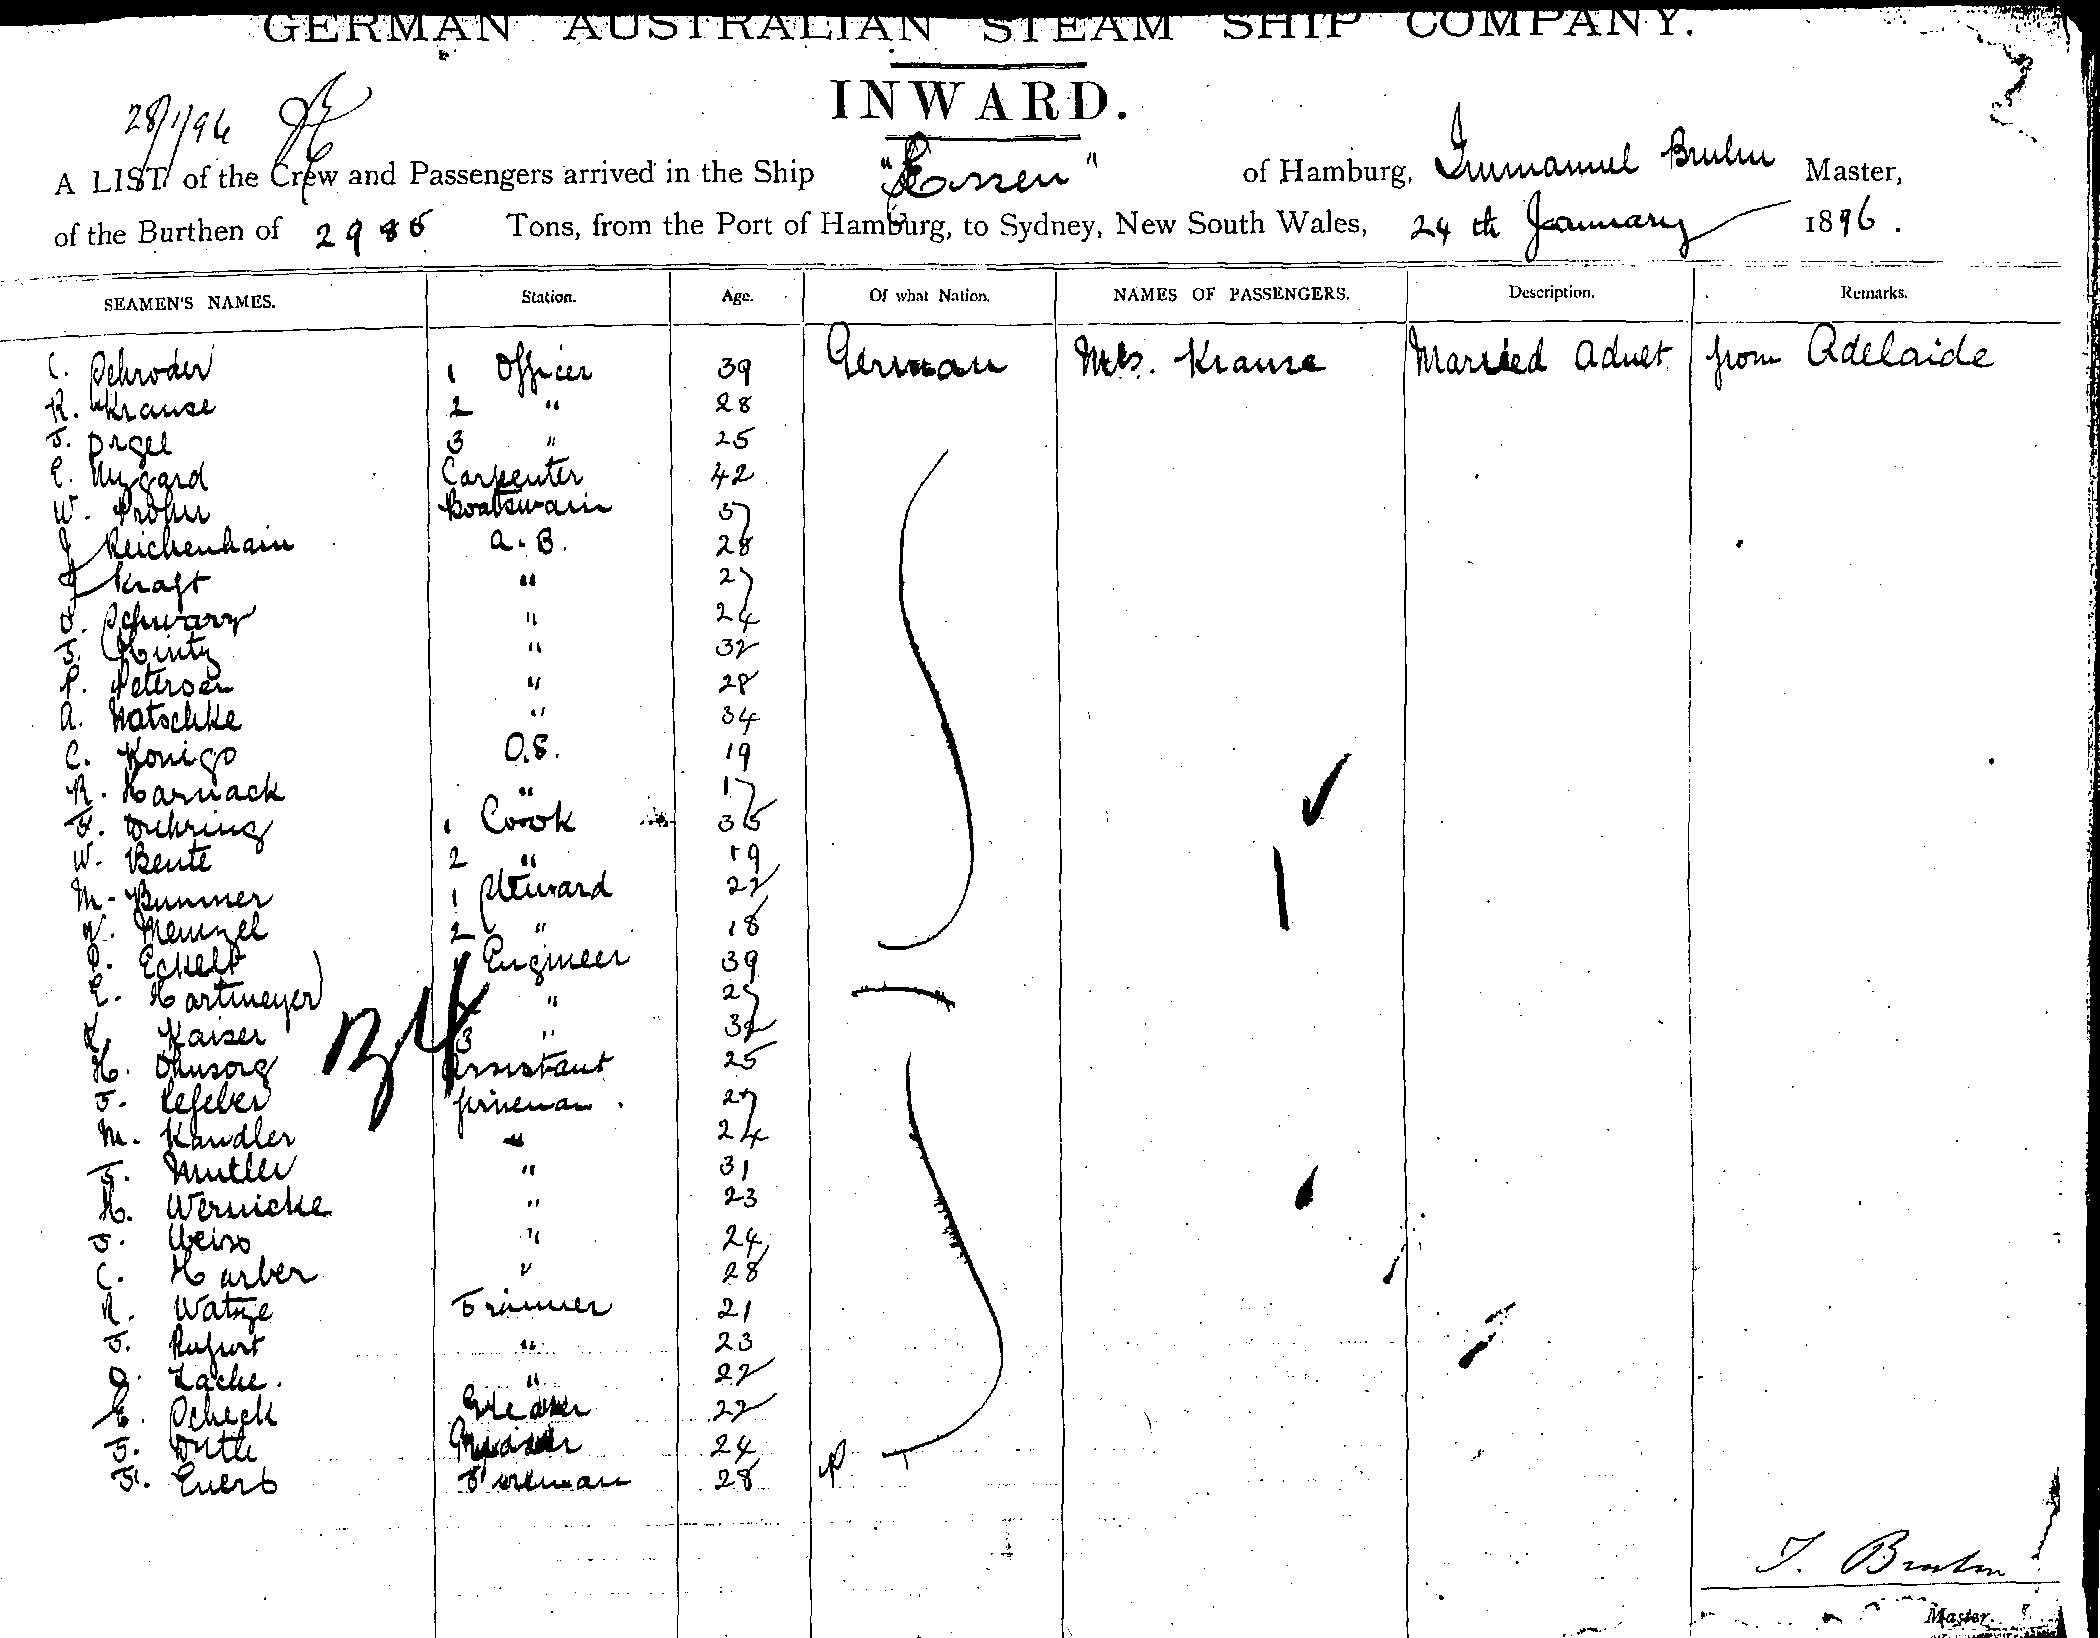 GERMAN AUSTRALIAN STEAM SHIP COMPANY.
INWARD.
28/1/96
A LIST of the Crew and Passengers arrived in the Ship "Essen" of Hamburg, Immanuel Bruhn Master,
of the Burthen of 2985 Tons, from the Port of Hamburg, to Sydney, New South Wales, 24th January 1896.
SEAMEN'S NAMES. Station. Age. Of what Nation. NAMES OF PASSENGERS. Description. Remarks.
C. Schroder 1 Officer 39 German Mrs. Krause Married Adult from Adelaide
R. Krause 2 " 28
F. Orgel 3 " 25
E. Nygard Carpenter 42
W. Prohn Boatswain 37
J Reichenhain A.B. 28
J Kraft " 27
O. Schwarz " 24
F. Hintz " 32
P. Petersen " 28
A. Natschke " 34
C. Konigo O.S. 19
R. Harnack " 17
F. Duhring 1 Cook 36
W. Bente 2 " 19
M. Bummer 1 Steward 22
W. Menzel 2 " 18
P. Eckelt 1 Engineer 39
E. Hartmeyer 2 " 27
Kaiser 3 " 32
H. Ohnsorg Assistant 25
F. Lefeber Fireman. 27
M. Kandler " 24
F. Muller " 31
H. Wernicke " 23
F. Weiss " 24
C. Harber " 28
R. Watzge Trimmer 21
F. Rupert " 23
O. Zache. " 22
E. Scheck Greaser 22
F. Dutle 24
F. Evers Foreman 28
34
I. Bruhn
Master.